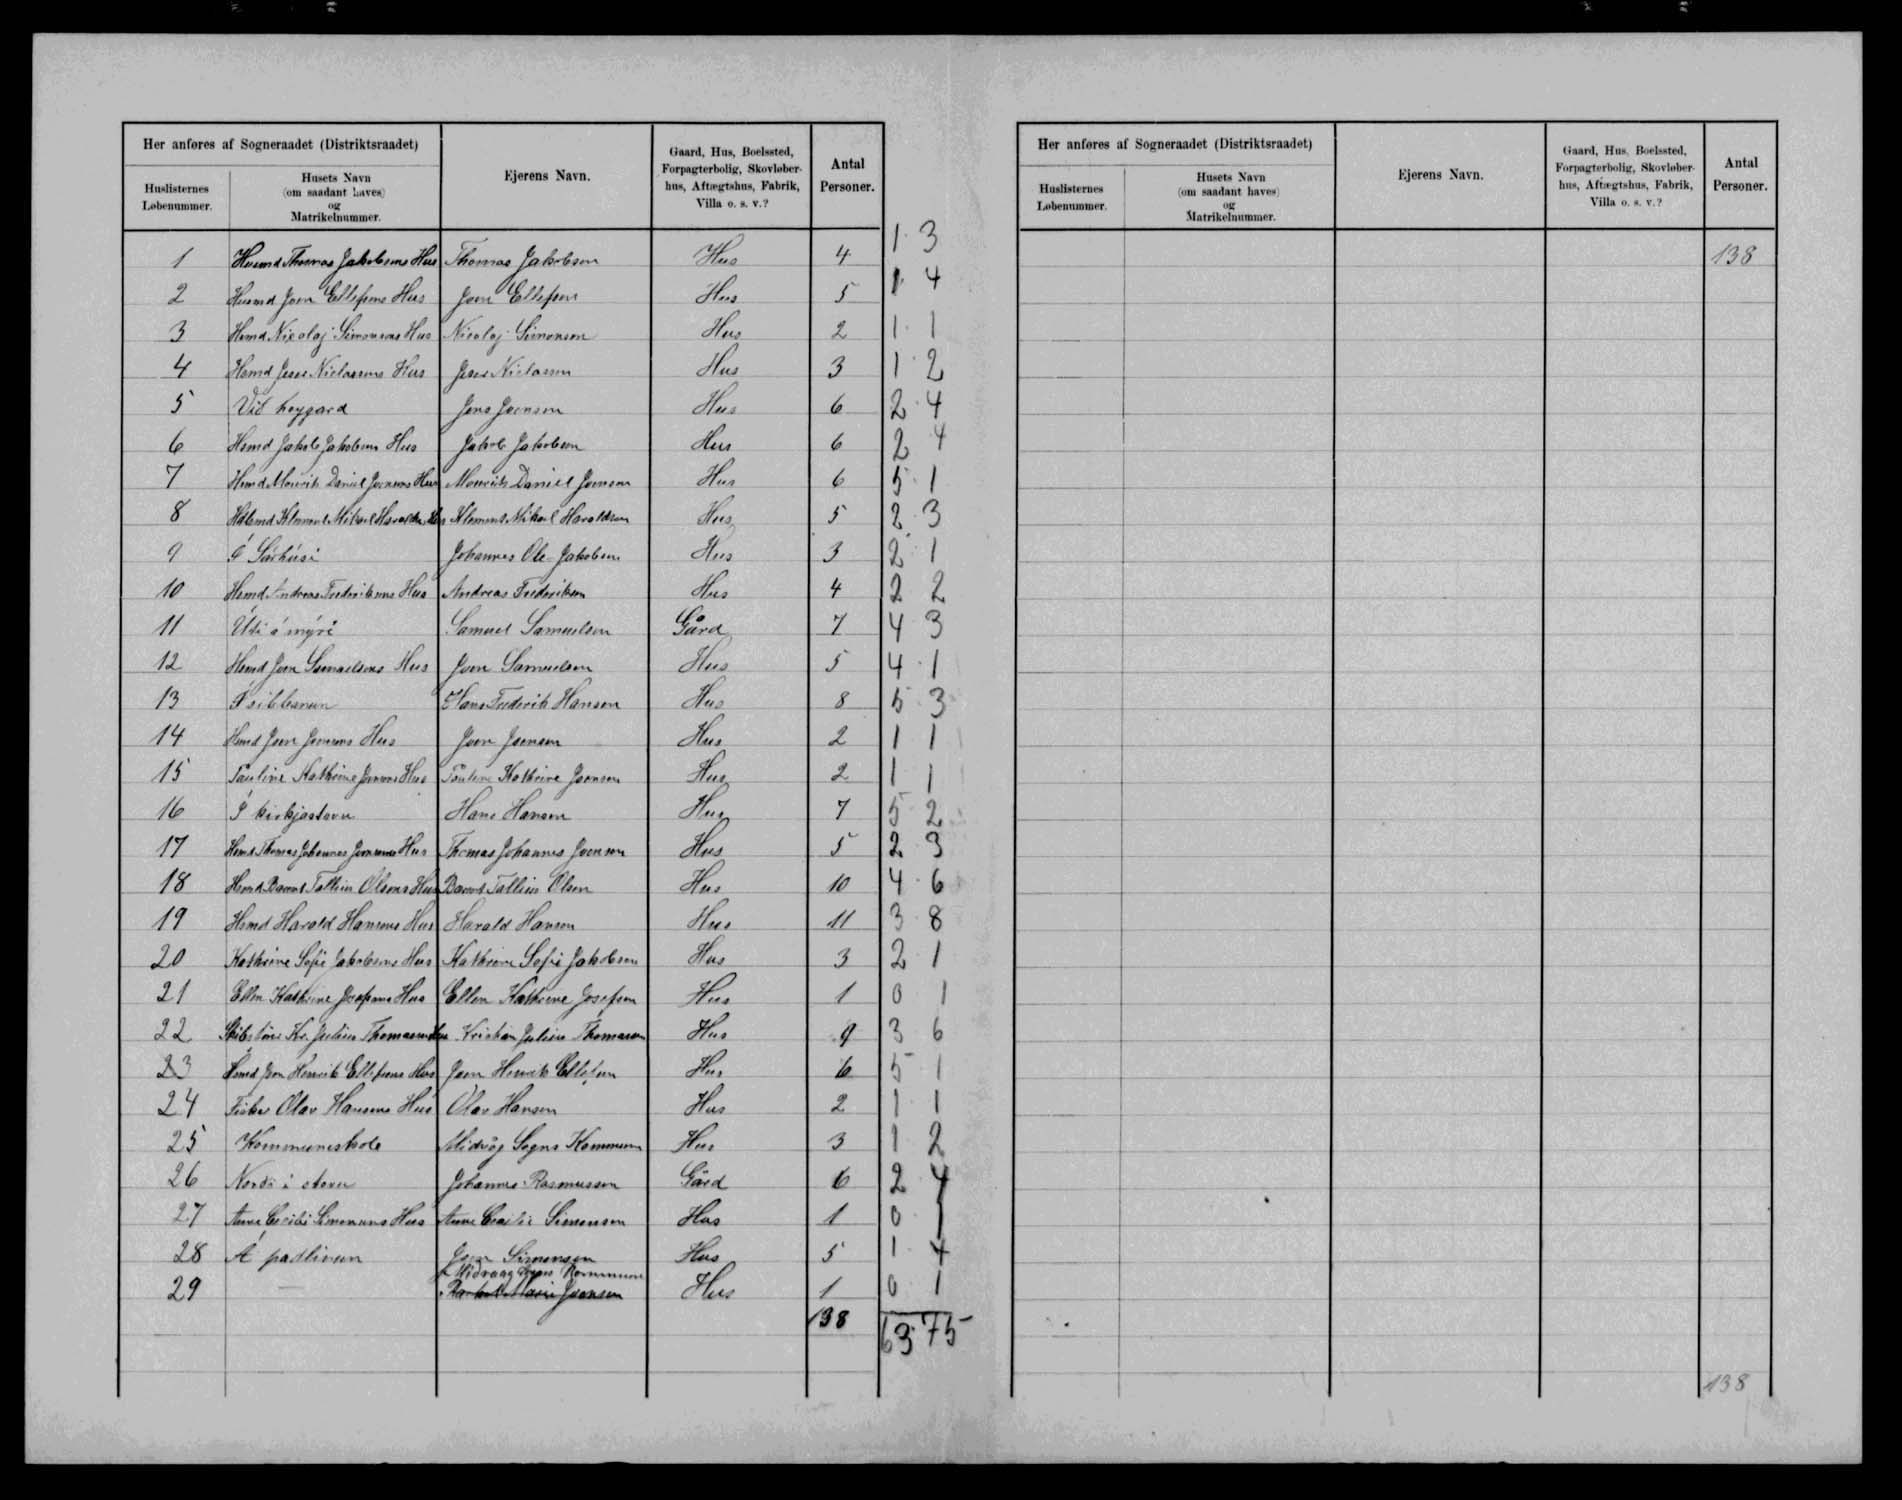 Her anføres af Sogneraadet (Distriktsraadet)
Huslisternes Løbenummer.
Husets Navn (om saadant haves) og Matrikelnummer.
Ejerens Navn.
Gaard, Hus, Boelssted, Forpagterbolig, Skovløberhus, Aftægtshus, Fabrik, Villa o. s. v.?
Antal Personer.
1 Husmd Thomas Jakobsens Hus Thomas Jakobsen Hus 4 1 3
2 Husmd Joen Ellefsens Hus Joen Ellefsen Hus 5 1 4
3 Hsmd Nicolaj Simonsens Hus Nicolaj Simonsen Hus 2 1 1
4 Hsmd Niclassens Hus Niclassen Hus 3 1 2
5 Við heygard Jens Joensen Hus 6 2 4
6 Hsmd Jakob Jakobsens Hus Jakob Jakobsen Hus 6 2 4
7 Hsmd Mourits Daniel Joensens Hus Mourits Daniel Joensen Hus 6 5 1
8 Klement Mikael Haraldsen Hus Klement Mikael Haraldsen Hus 5 2 3
9 Johannes Ole Jakobsen Hus 3 2 1
10 Hsmd Andreas Frederiksens Hus Andreas Frederiksen Hus 4 2 2
11 Úti á mýri Samuel Samuelsen Gård 7 4 3
12 Hsmd Joen Samuelsens Hus Joen Samuelsen Hus 5 4 1
13 Hans Frederik Hansen Hus 8 5 3
14 Hsmd Joen Joensens Hus Joen Joensen Hus 2 1 1
15 Pauline Kathrine Joensens Hus Pauline Kathrine Joensen Hus 2 1 1
16 Í kirkjastovu Hans Hansen Hus 7 5 2
17 Hsmd Thomas Johannes Joensens Hus Thomas Johannes Joensen Hus 5 2 3
18 Hsmd Tallius Olsens Hus Tallius Olsen Hus 10 4 6
19 Hsmd Harald Hansens Hus Harald Hansen Hus 11 3 8
20 Kathrine Sofie Jakobsens Hus Kathrine Sofie Jakobsen Hus 3 2 1
21 Ellen Kathrine Josefsens Hus Ellen Kathrine Josefsen Hus 1 0 1
22 Kr. Julius Thomasens Hus Kristian Julius Thomasen Hus 9 3 6
23 Hsmd Joen Henrik Ellefsens Hus Joen Henrik Ellefsen Hus 6 5 1
24 Fisker Olav Hansens Hus Olav Hansen Hus 2 1 1
25 Kommuneskole Midvåg Sogns Kommune Hus 3 1 2
26 Norði í stovu Johannes Rasmussen Gård 6 2 4
27 Anne Cecilie Simonsens Hus Anne Cecilie Simonsen Hus 1 0 1
28 Joen Simonsen Hus 5 1 4
Midvaag Sogns Kommune
29 — Joensen Hus 1 0 1
138 63 75
Her anføres af Sogneraadet (Distriktsraadet)
Huslisternes Løbenummer.
Husets Navn (om saadant haves) og Matrikelnummer.
Ejerens Navn.
Gaard, Hus, Boelssted, Forpagterbolig, Skovløberhus, Aftægtshus, Fabrik, Villa o. s. v.?
Antal Personer.
138
138